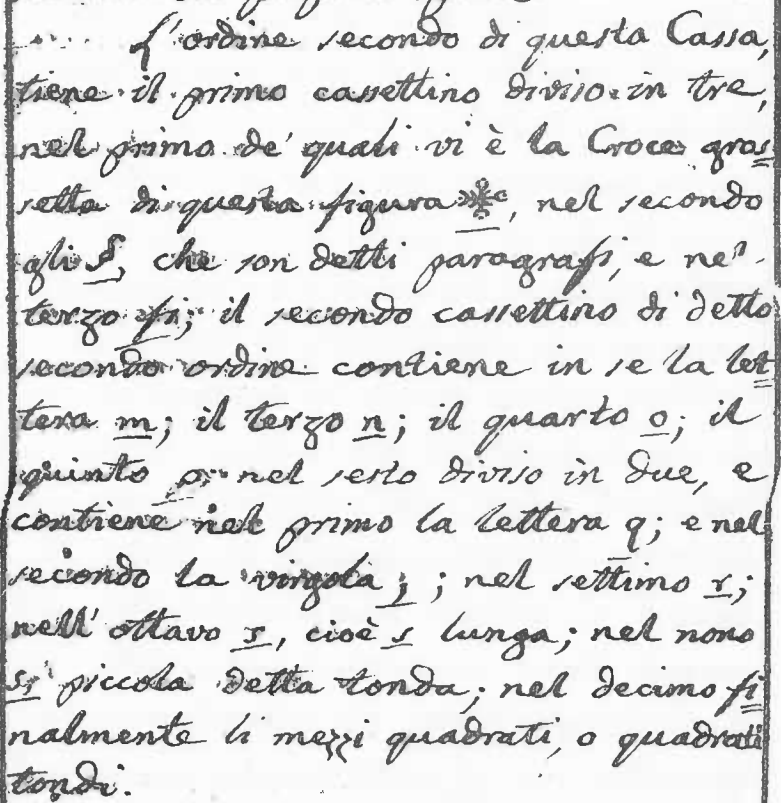 L'ordine secondo di questa Cassa,
tiene il primo cassettino diviso in tre,
nel primo de' quali vi è la Croce gros=
setta di questa figura ✠, nel secondo
gli §, che son detti paragrafi, e nel
terzo fi; il secondo cassettino di detto
secondo ordine contiene in se la let=
tera m; il terzo n; il quarto o; il
quinto p. nel sesto diviso in due, e
contiene nel primo la lettera q; e nel
secondo la virgola ; ; nel settimo r;
nell' ottavo ſ, cioè ſ lunga; nel nono
s, piccola detta tonda; nel decimo fi=
nalmente li mezzi quadrati, o quadrati
tondi.